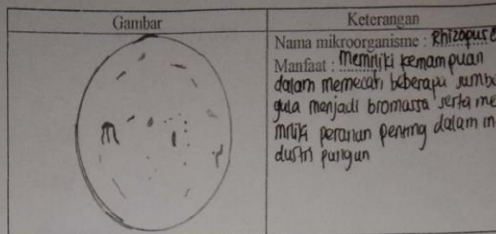 Gambar
Keterangan
Nama mikroorganisme : Rhizopus
Manfaat : Memiliki kemampuan
dalam memecah beberapa
gula menjadi biomassa serta me
miliki peranan penting dalam in
dustri pangan